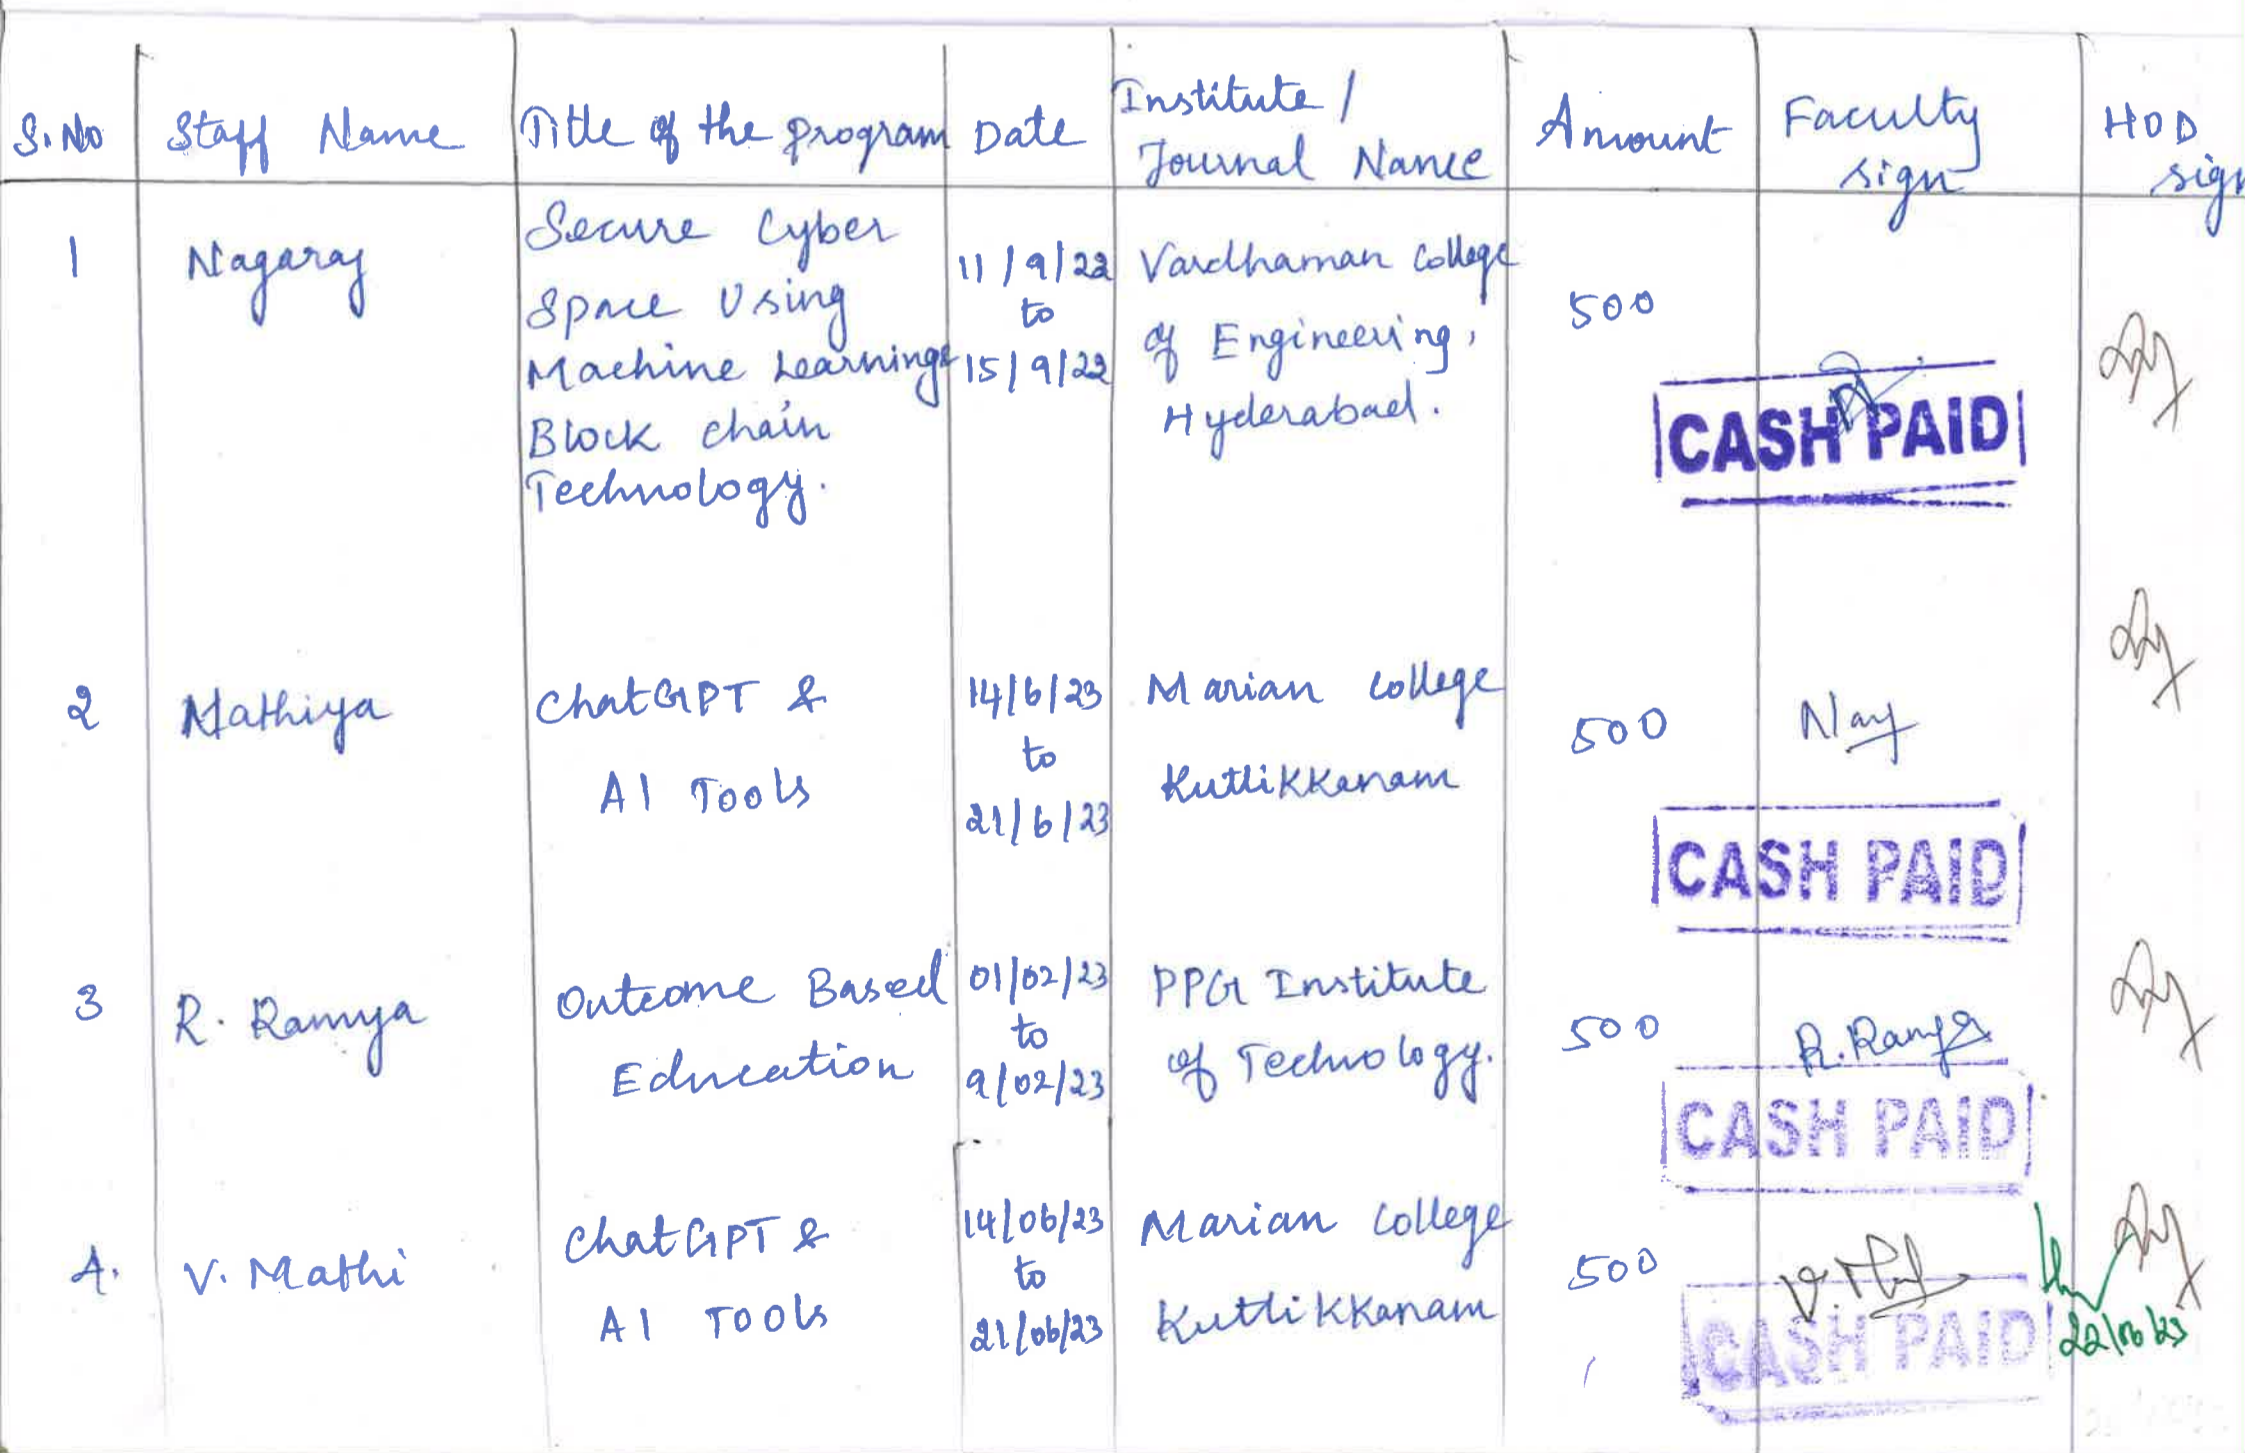 S.No Staff Name Title of the program Date Institute / Journal Name Amount Faculty sign HOD sign
1 Nagaraj
Secure Cyber
Space Using
Machine Learning &
Block chain
Technology.
11/9/22
to
15/9/22
Vardhaman College
of Engineering,
Hyderabad.
500
CASH PAID
2 Nathiya
ChatGPT &
AI Tools
14/6/23
to
21/6/23
Marian College
Kuttikkanam
500
CASH PAID
3 R. Ramya
Outcome Based
Education
01/02/23
to
9/02/23
PPG Institute
of Technology.
500
R. Ramya
CASH PAID
4. V. Mathi
ChatGPT &
AI Tools
14/06/23
to
21/06/23
Marian College
Kuttikkanam
500
CASH PAID
22/06/23